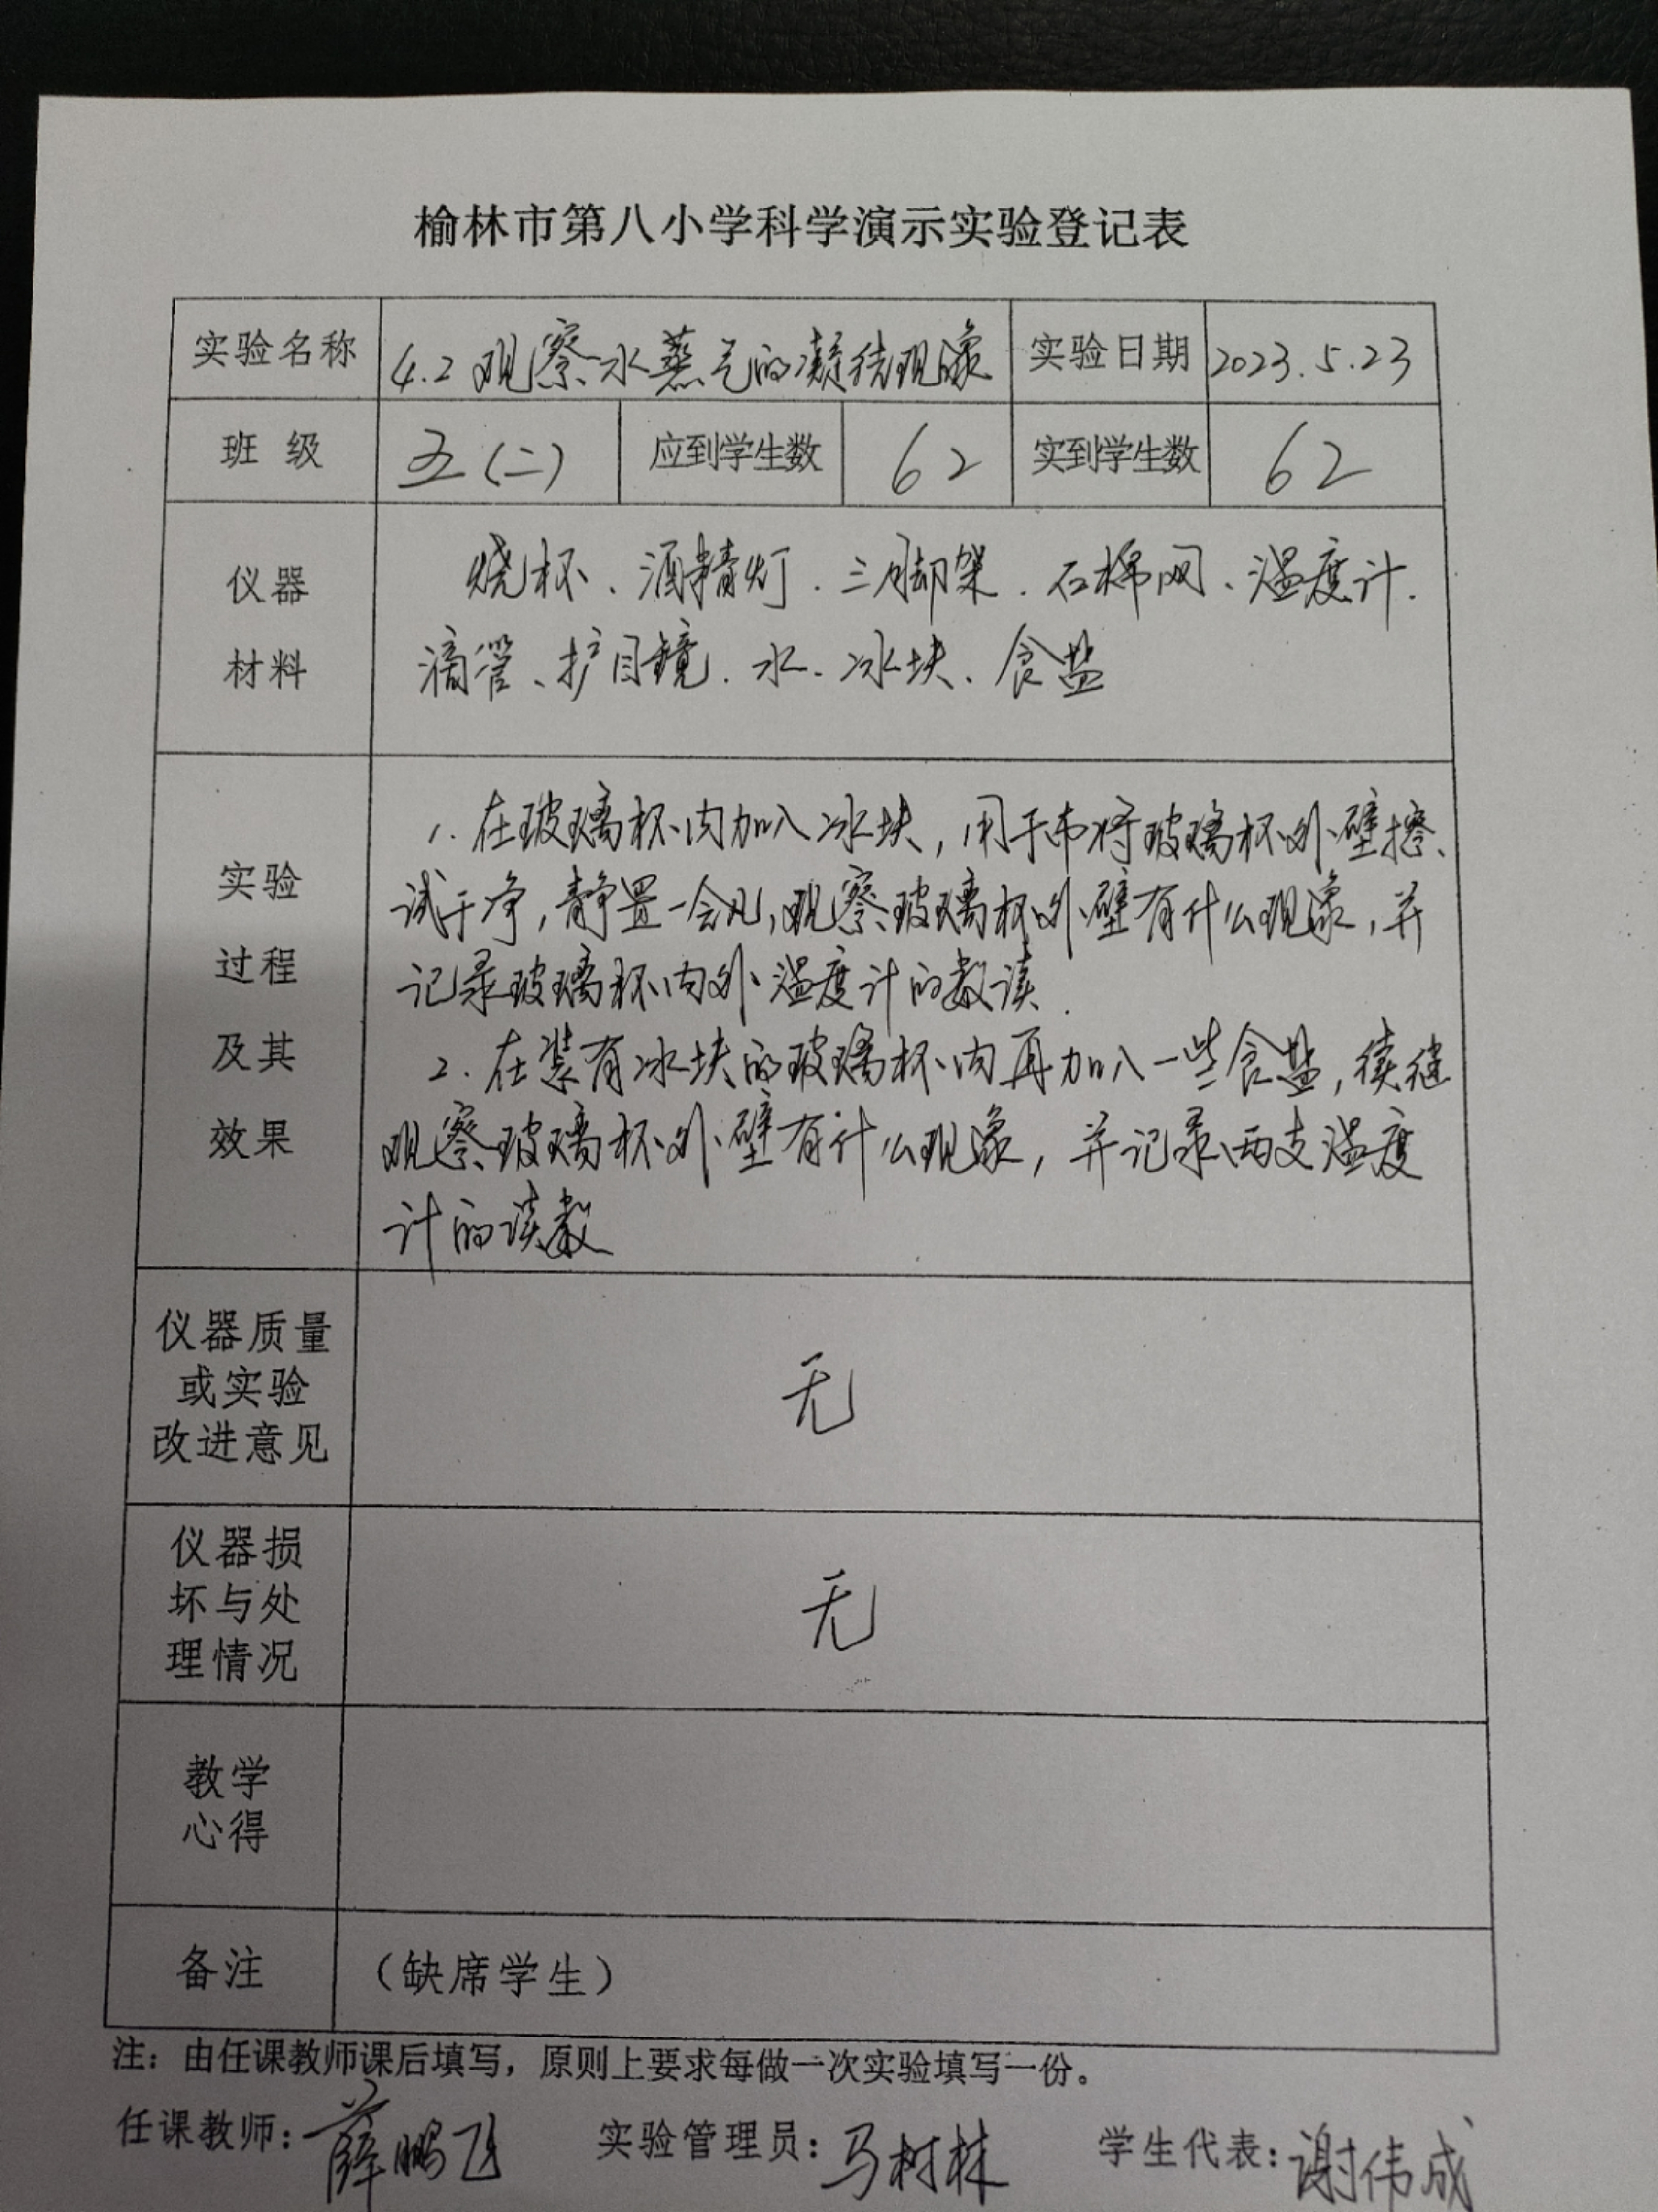 榆林市第八小学科学演示实验登记表
实验名称 4.2 观察水蒸气的凝结现象 实验日期 2023.5.23
班 级 五(二) 应到学生数 62 实到学生数 62
仪器
材料
烧杯、酒精灯.三脚架.石棉网、温度计.
滴管、护目镜.水.冰块.食盐
实验
过程
及其
效果
1.在玻璃杯内加入冰块,用干布将玻璃杯外壁擦
试干净,静置一会儿,观察玻璃杯外壁有什么现象,并
记录玻璃杯内外温度计的数读.
2.在装有冰块的玻璃杯内再加入一些食盐,续继
观察玻璃杯外壁有什么现象,并记录两支温度
计的读数
仪器质量
或实验
改进意见
无
仪器损
坏与处
理情况
无
教学
心得
备注 (缺席学生)
注:由任课教师课后填写,原则上要求每做一次实验填写一份。
任课教师:薛鹏飞 实验管理员:马树林 学生代表:谢伟成